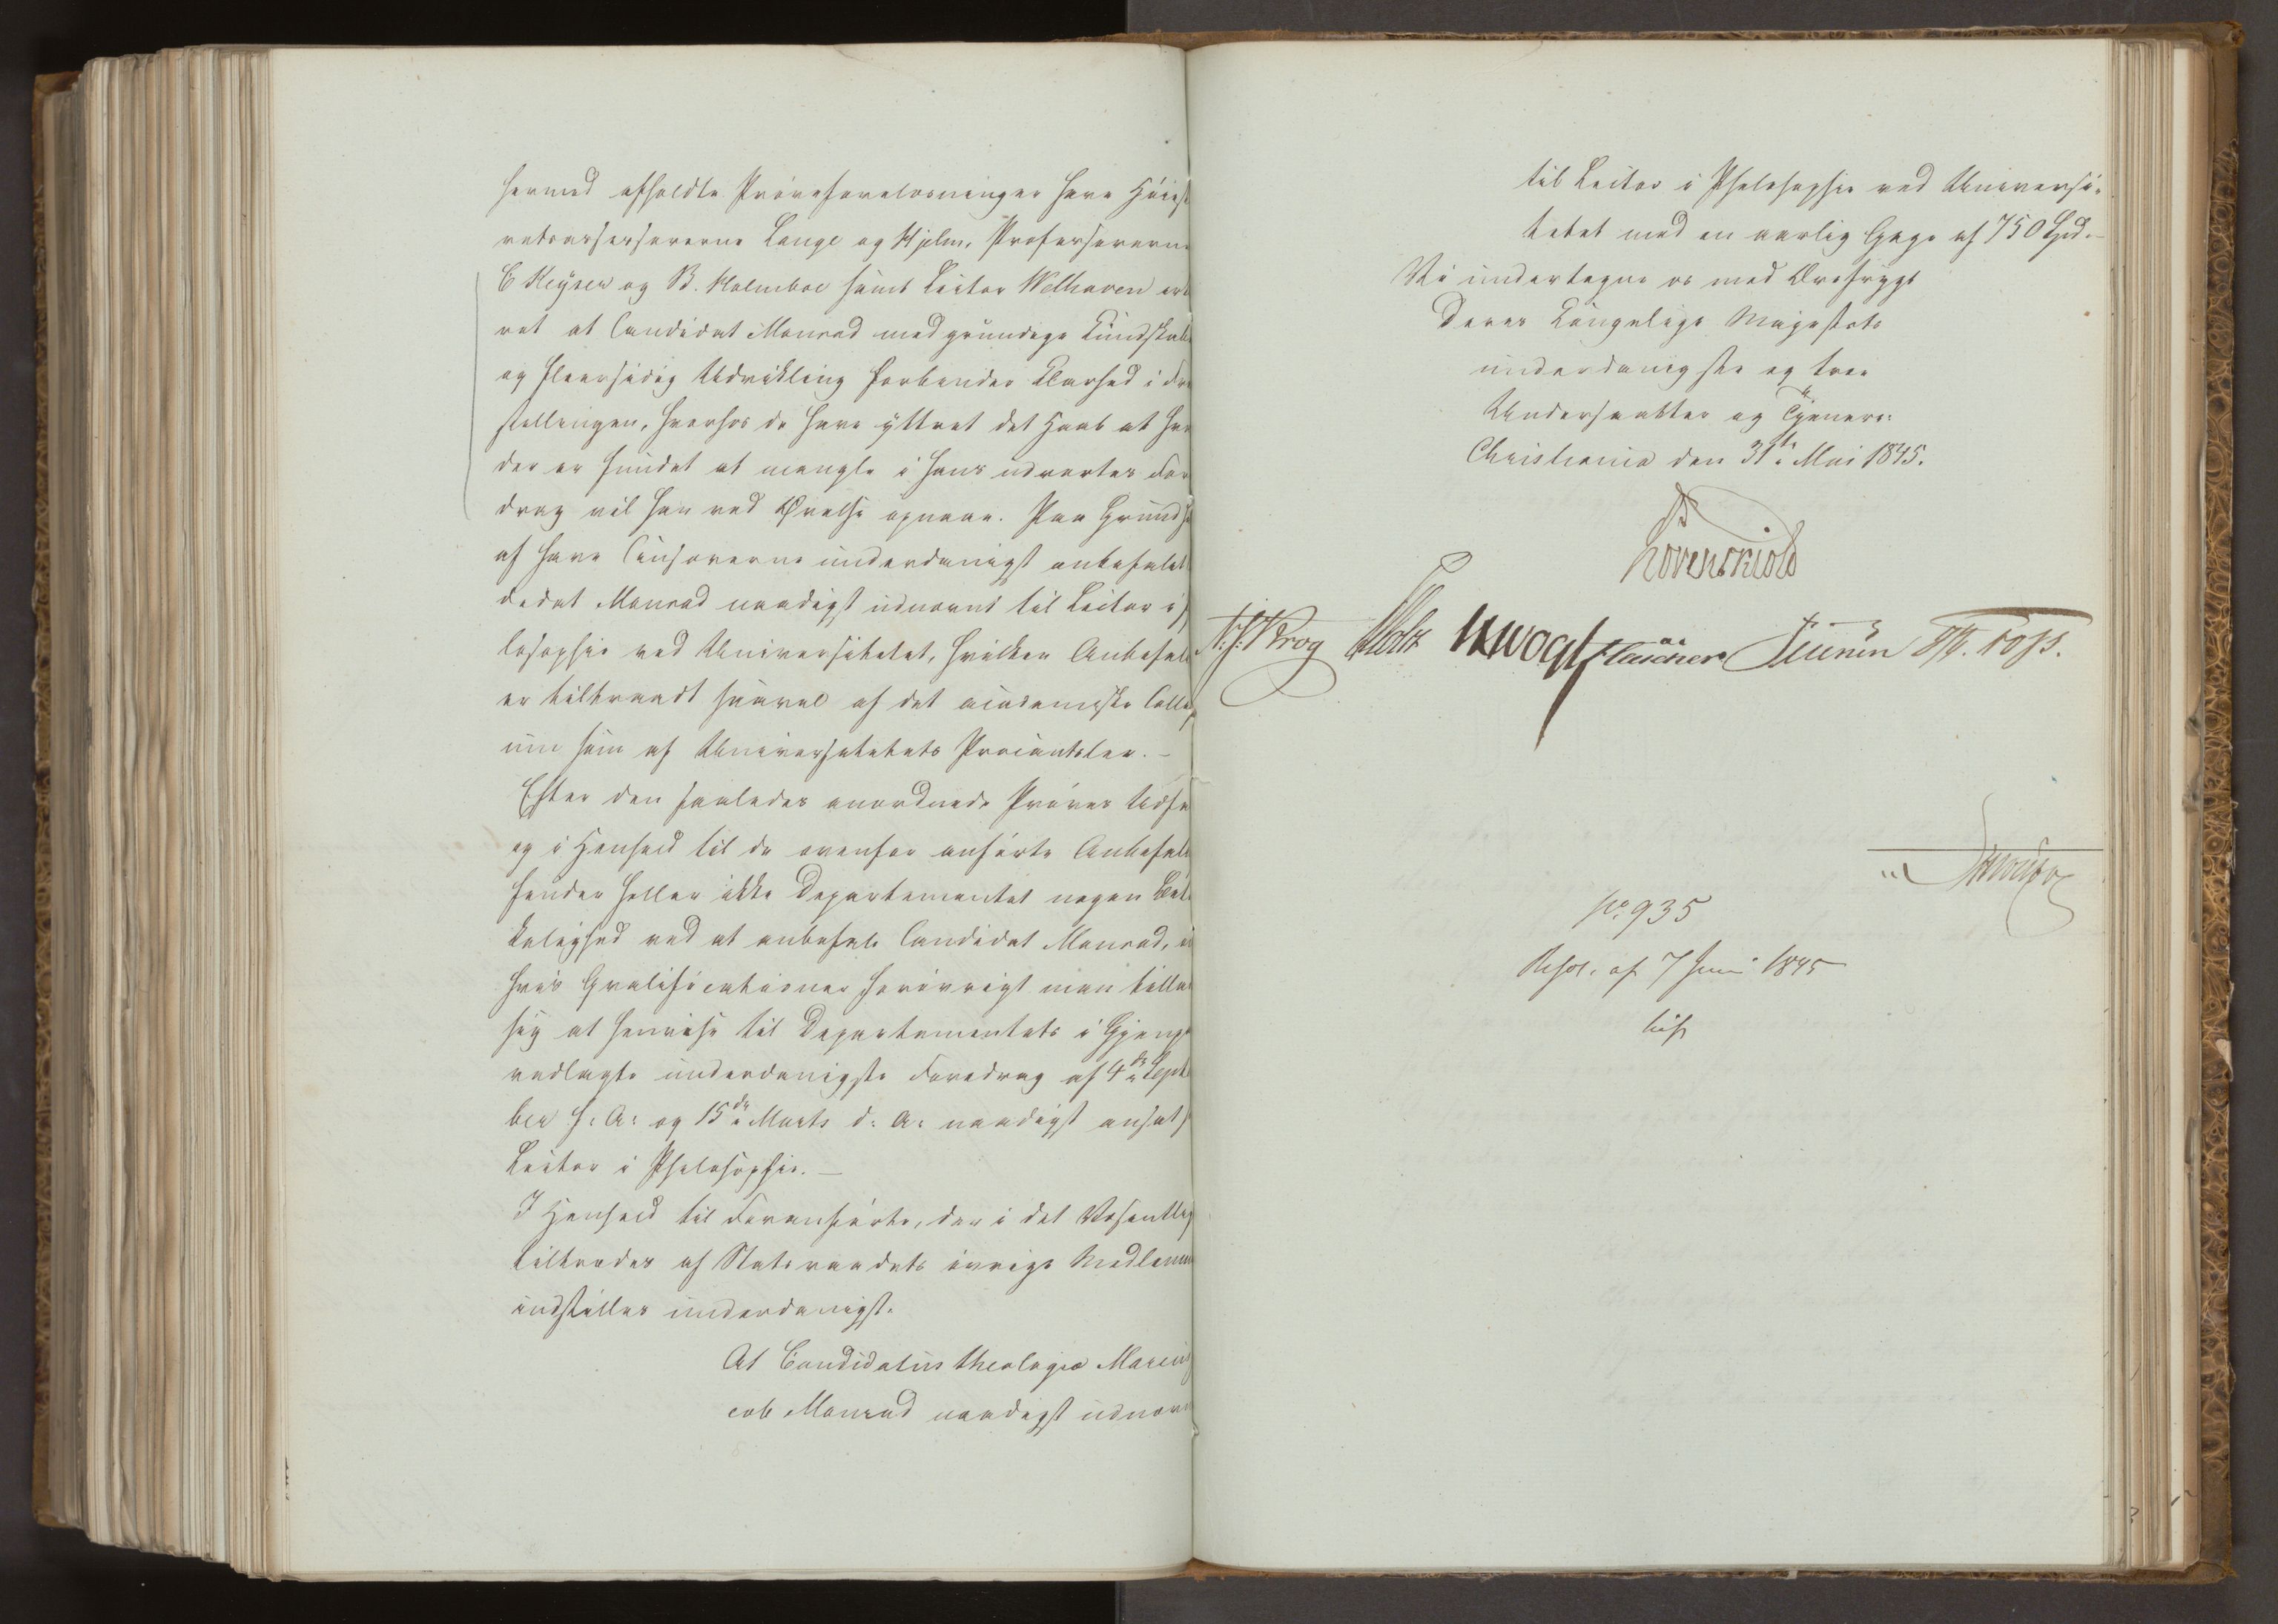 hermed afholdte Prøveforelæsninger have Høiest
retsassessorerne Lange og Hjelm, Professorerne
C Keyser og B. Holmboe samt Lector Welhaven erk
ret at Candidat Monrad med grundige Kundskabe
og fleersidig Udvikling forbinder Klarhed i Frem
stillingen, hvorhos de have yttret det Haab at hva
der er fundet at mangle i hans udvortes For
drag vil han ved Øvelse opnaae. Paa Grund he
af have Censorerne underdanigst anbefalet
didat Monrad naadigst udnævnt til Lector i
losophie ved Universitetet, hvilken Anbefal
er tiltraadt saavel af det academiske Colleg
um som af Universitetets Procantsler.–
Efter den saaledes anordnede Prøves Udfa
og i Henhold til de ovenfor anførte Anbefal
finder heller ikke Departementet nogen Bet
kelighed ved at anbefale Candidat Monrad,
hvis Qvalificationer forøvrigt man tilla
sig at henvise til Departementets i Gjenp
vedlagte underdanigste Foredrag af 4de Septe
ber f: A: og 15de Marts d: A: naadigst ansat
Lector i Philosophie.–
I Henhold til Foranførte, der i det Væsentlig
tiltrædes af Statsraadets øvrige Medlemm
indstilles underdanigst:
At Candidatus theologiæ Marcus
cob Monrad naadigst udnævn
til Lector i Philosophie ved Universi-
tetet med en aarlig Gage af 750 Spd.–
Vi undertegne os med Ærefrygt
Deres Kongelige Majestæts
underdanigste og troe
Undersaatter og Tjenere:
Christiania den 31te Mai 1845.
Løvenskiold
N: J: Krog Holst JHVogt Fleischer Sunin H. Foss.
No 935
Resol. af 7 Juni 1845